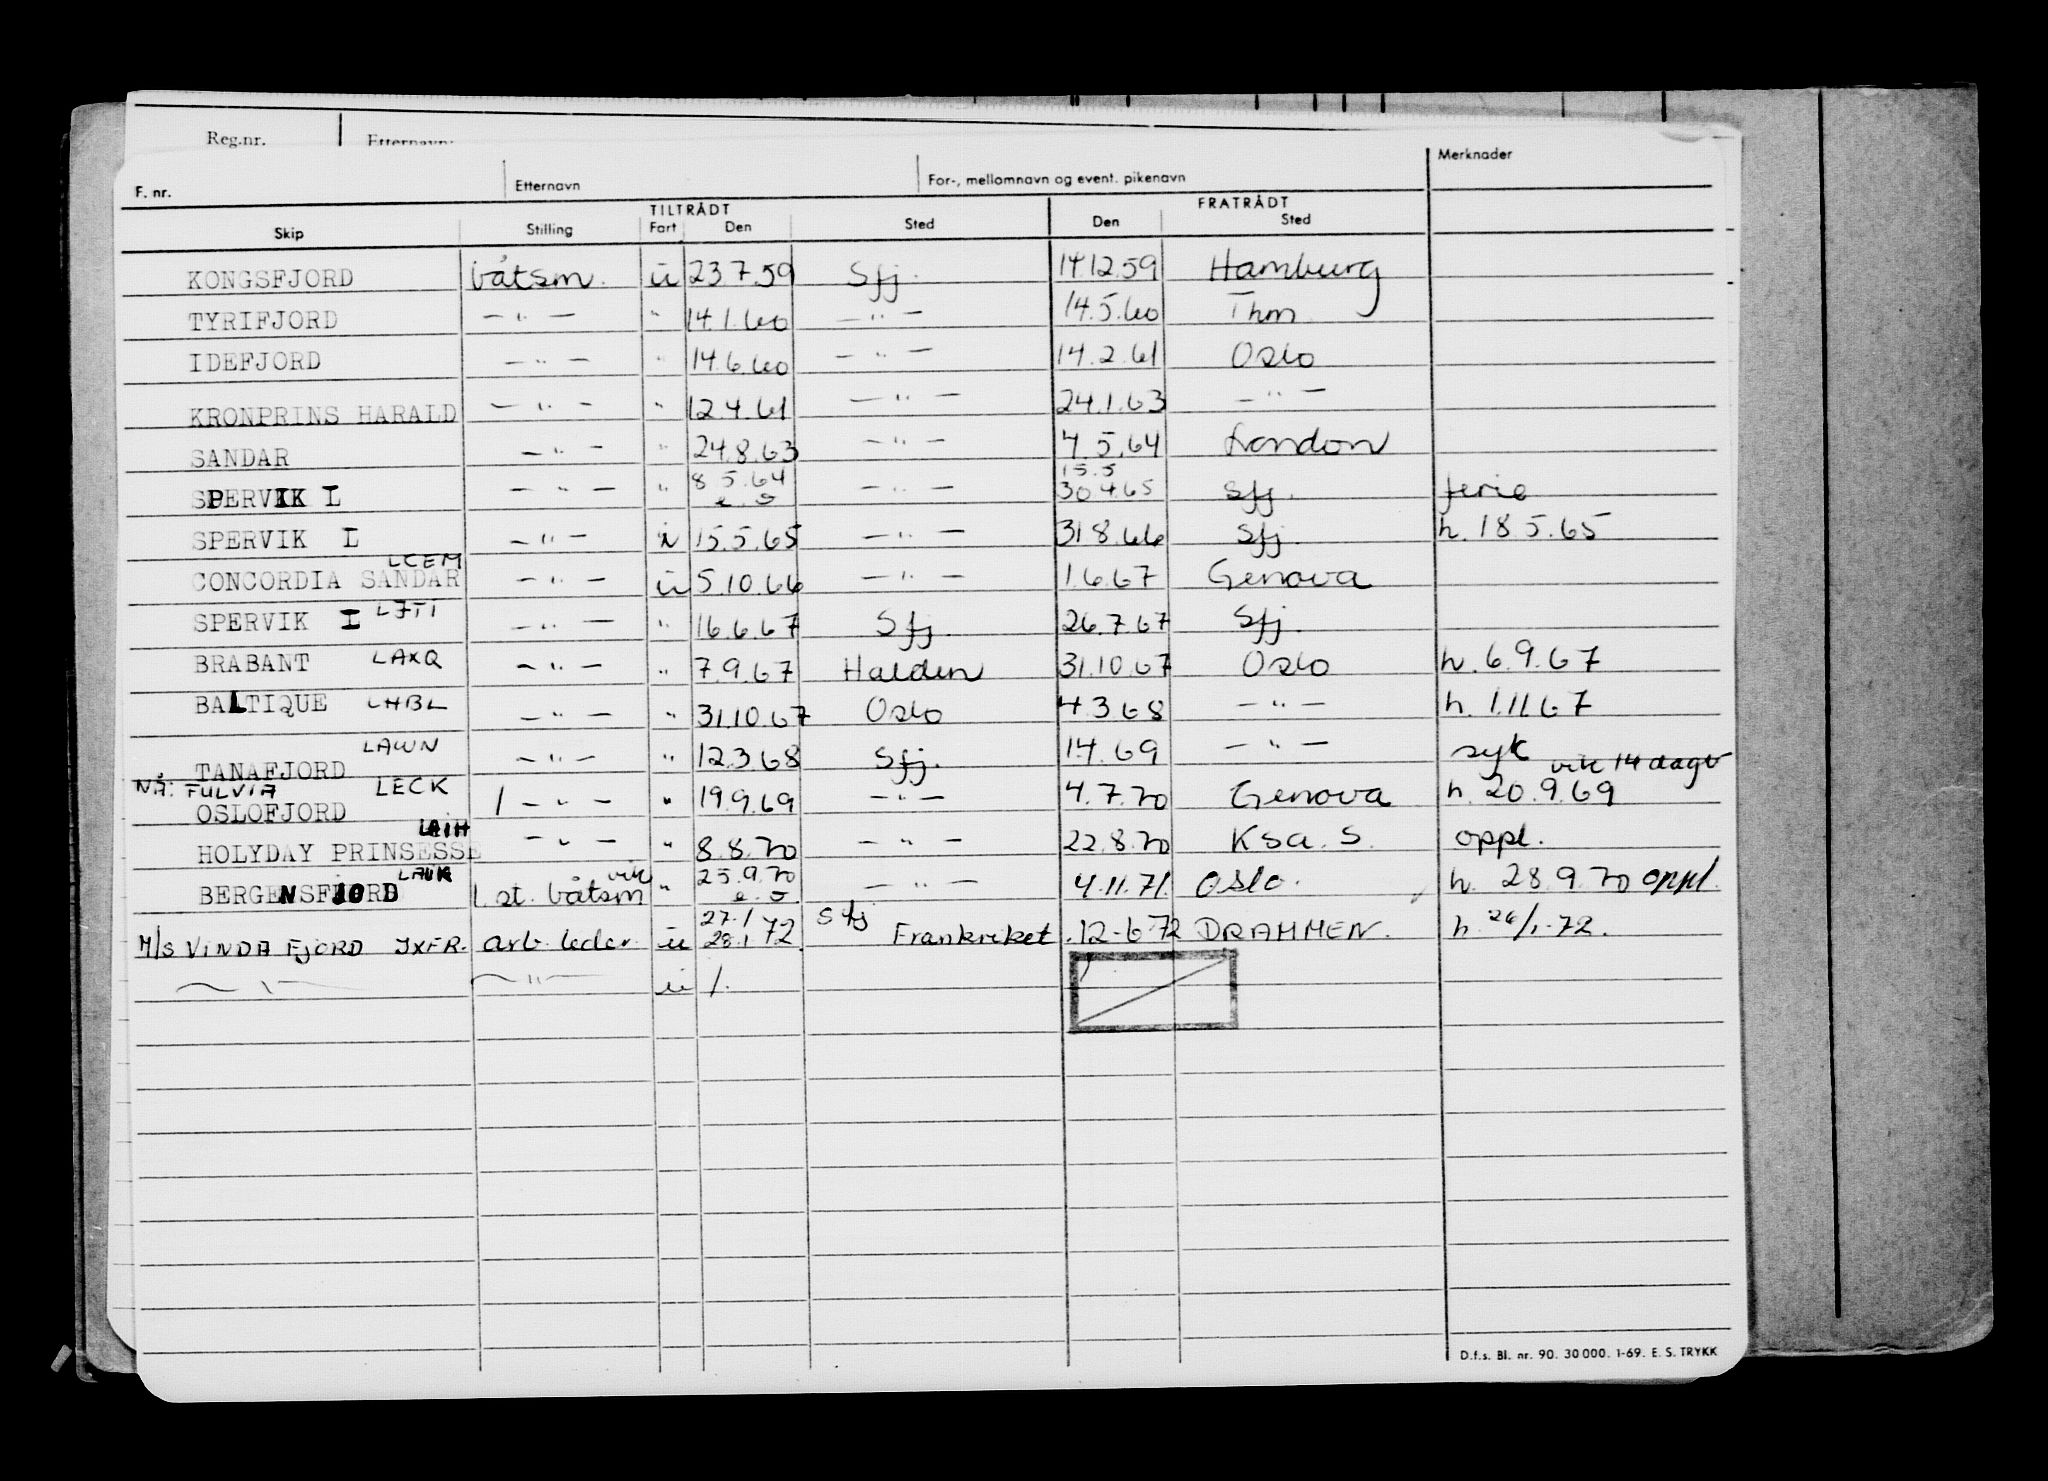 Reg.nr. Etternavn:
F. nr. Etternavn For-, mellomnavn og event. pikenavn Merknader
TILTRÅDT FRATRÅDT
Skip Stilling Fart Den Sted Den Sted
KONGSFJORD båtsm. u 23.7.59 Sfj. 14.12.59 Hamburg
TYRIFJORD — " — " 14.1.60 — " — 14.5.60 Thm
IDEFJORD — " — " 14.6.60 — " — 14.2.61 Oslo
KRONPRINS HARALD — " — " 12.4.61 — " — 24.1.63 — " —
SANDAR — " — " 24.8.63 — " — 4.5.64 London
15.5
SPERVIK I — " — " 8.5.64 e.o — " — 30.4.65 Sfj. ferie
SPERVIK I — " — i 15.5.65 — " — 31.8.66 Sfj. h. 18.5.65
LCEM
CONCORDIA SANDAR — " — u 5.10.66 — " — 1.6.67 Genova
SPERVIK I LJTI — " — " 16.6.67 Sfj. 26.7.67 Sfj.
BRABANT LAXQ — " — " 7.9.67 Halden 31.10.67 Oslo h. 6.9.67
BALTIQUE LHBL — " — " 31.10.67 Oslo 4.3.68 — " — h. 1.11.67
LAWN
TANAFJORD — " — " 12.3.68 Sfj. 1.4.69 — " — syk vik 14 dager
NÅ: FULVIA LECK
OSLOFJORD 1 — " — " 19.9.69 — " — 4.7.70 Genova h. 20.9.69
LAIH
HOLYDAY PRINSESSE — " — " 8.8.70 — " — 22.8.70 Ksa. S. oppl.
vik
BERGENSFJORD 1. st. båtsm " 25.9.70 e.o — " — 4.11.71. Oslo. h. 28.9.70 oppl.
27.1
M/S VINDAFJORD JXFR. arb. leder u 28.1 72. Sfj Frankriket .12-6-72 DRAMMEN. h. 26/1-72.
— " — — " — u /.
D.f.s. Bl. nr. 90. 30 000. 1-69. E. S. TRYKK